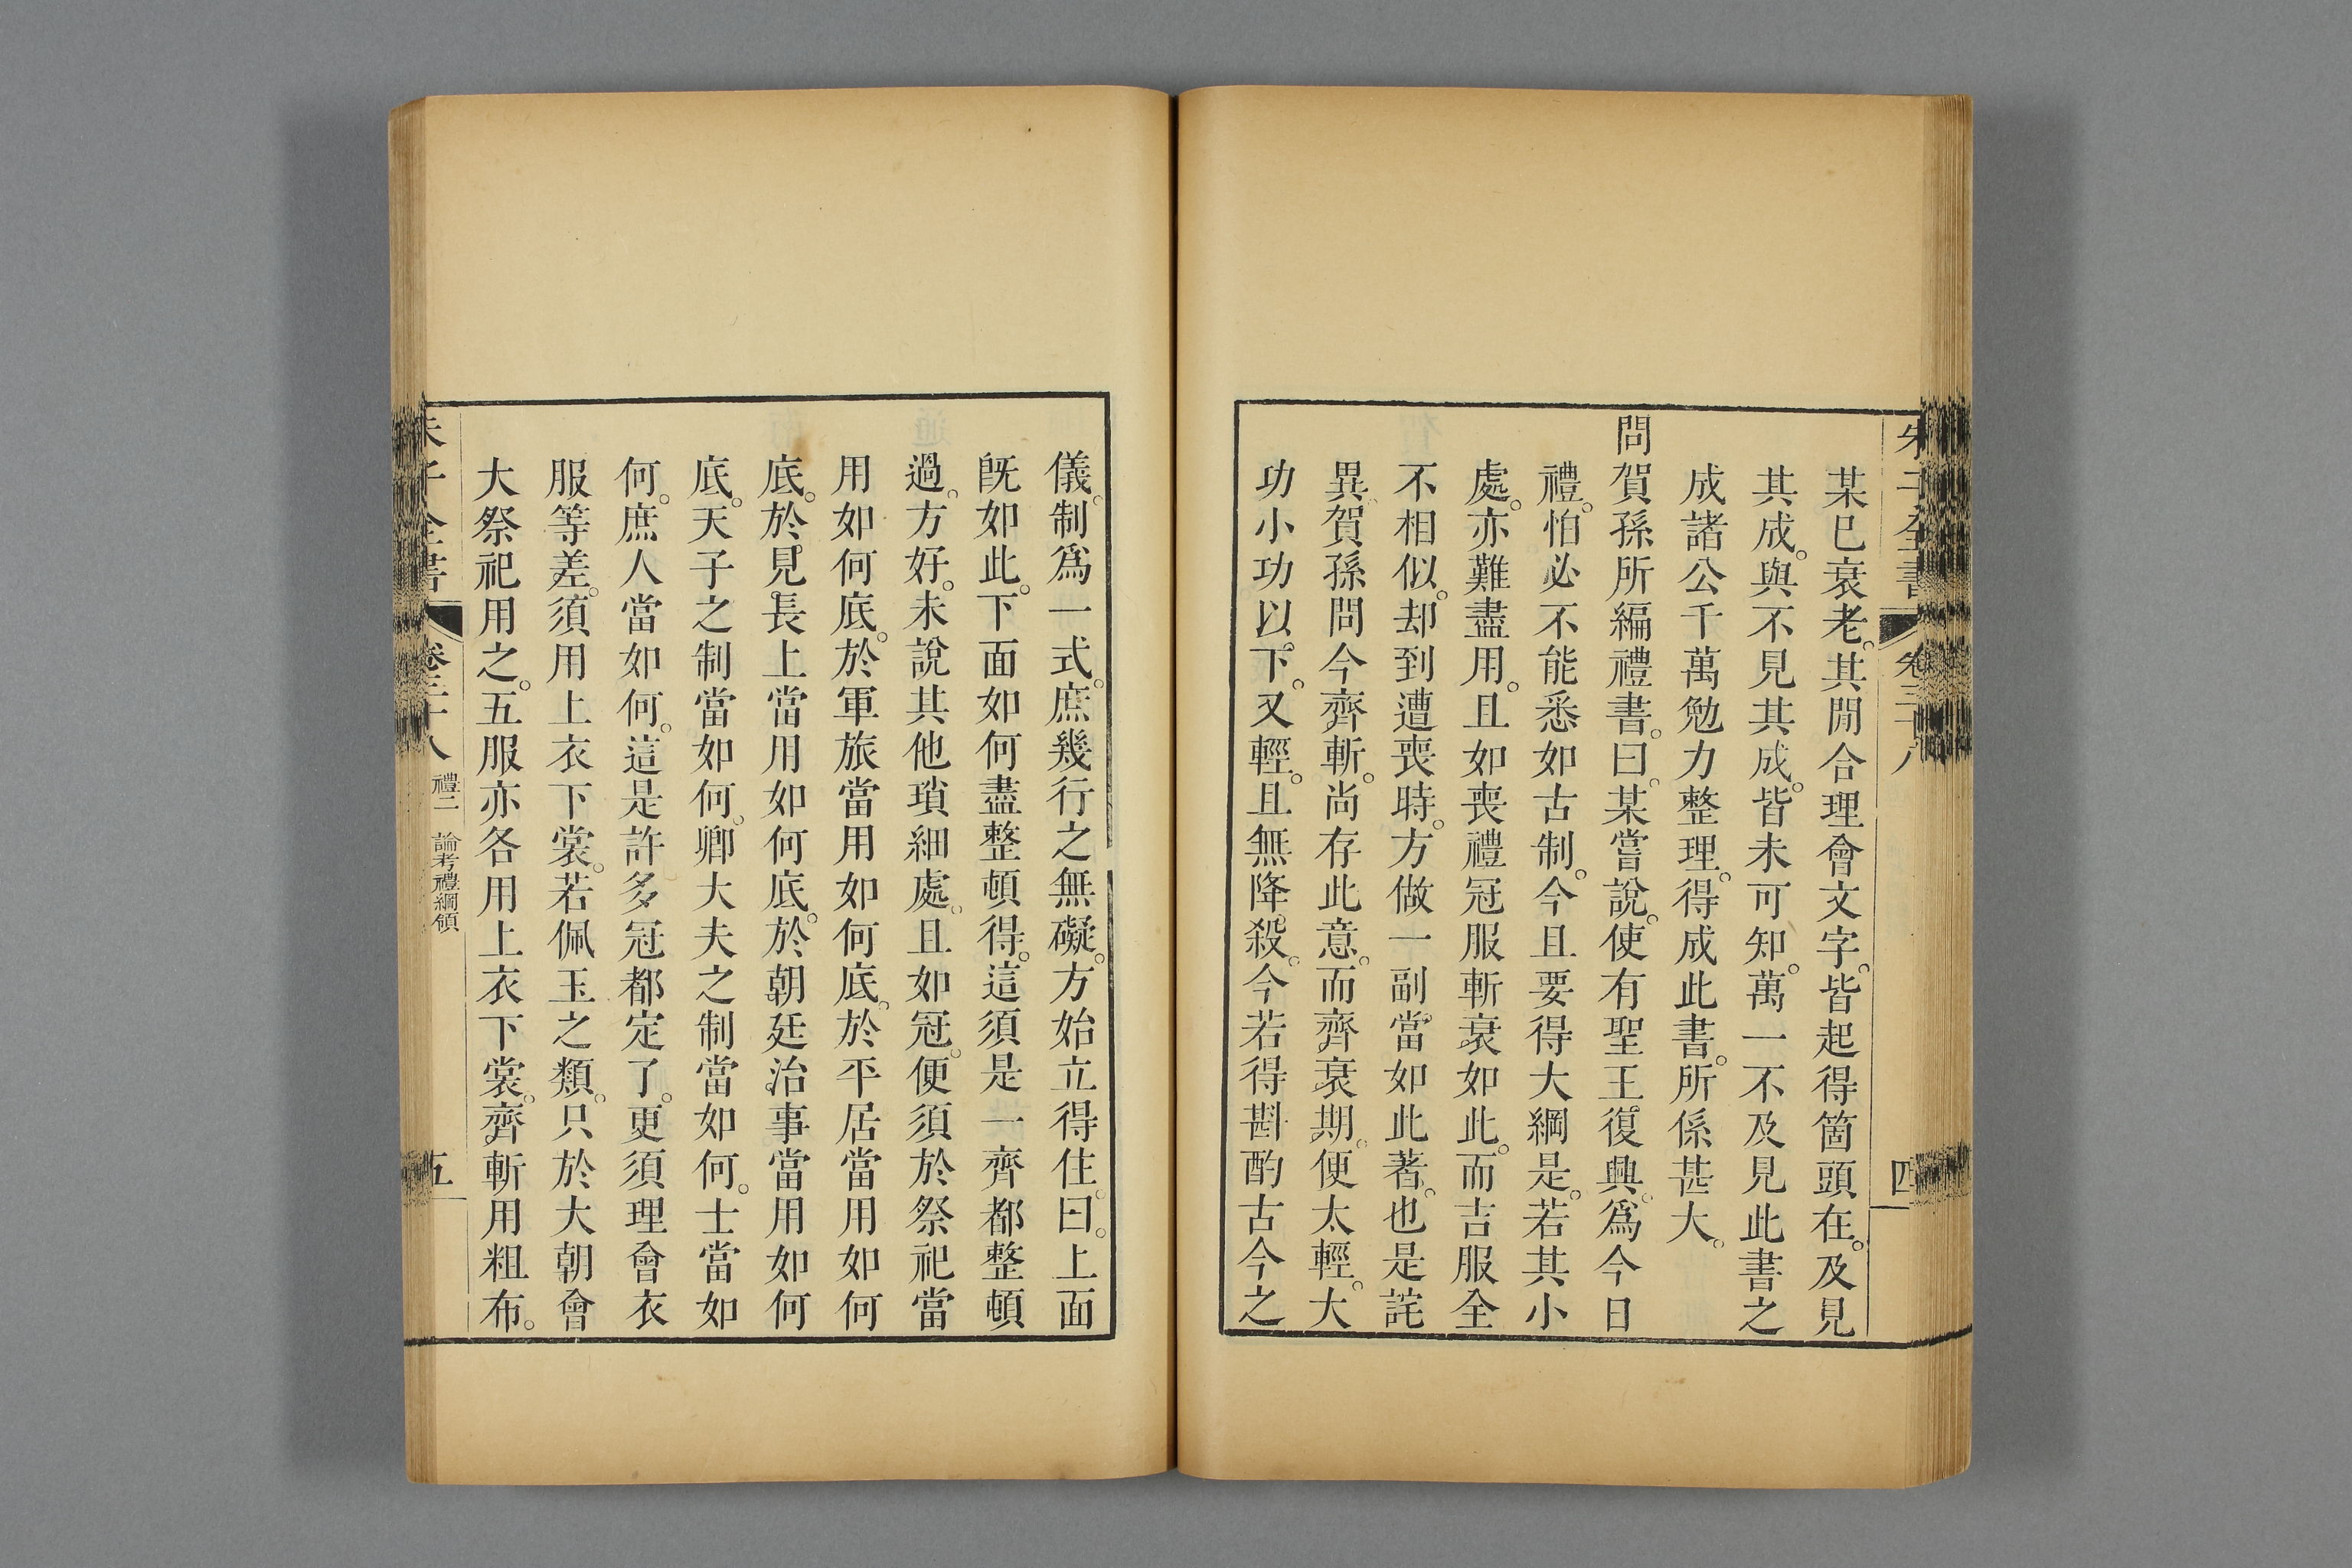 朱子全書 卷三十八 四
某已衰老。其閒合理會文字。皆起得箇頭在。及見
其成。與不見其成。皆未可知。萬一不及見此書之
成諸公千萬勉力整理。得成此書。所係甚大。
問賀孫所編禮書。曰。某嘗說。使有聖王復興。爲今日
禮。怕必不能悉如古制。今且要得大綱是。若其小
處。亦難盡用。且如喪禮冠服斬衰如此。而吉服全
不相似。却到遭喪時。方做一副當如此著。也是詫
異。賀孫問今齊斬。尚存此意。而齊衰期。便太輕。大
功小功以下。又輕。且無降殺。今若得斟酌古今之
儀。制爲一式。庶幾行之無礙。方始立得住。曰。上面
旣如此。下面如何盡整頓得。這須是一齊都整頓
過。方好。未說其他瑣細處。且如冠。便須於祭祀當
用如何底。於軍旅當用如何底。於平居當用如何
底。於見長上當用如何底。於朝廷治事當用如何
底。天子之制當如何。卿大夫之制當如何。士當如
何。庶人當如何。這是許多冠都定了。更須理會衣
服等差。須用上衣下裳。若佩玉之類。只於大朝會
大祭祀用之。五服亦各用上衣下裳。齊斬用粗布。
朱子全書 卷三十八 禮二 論考禮綱領 五